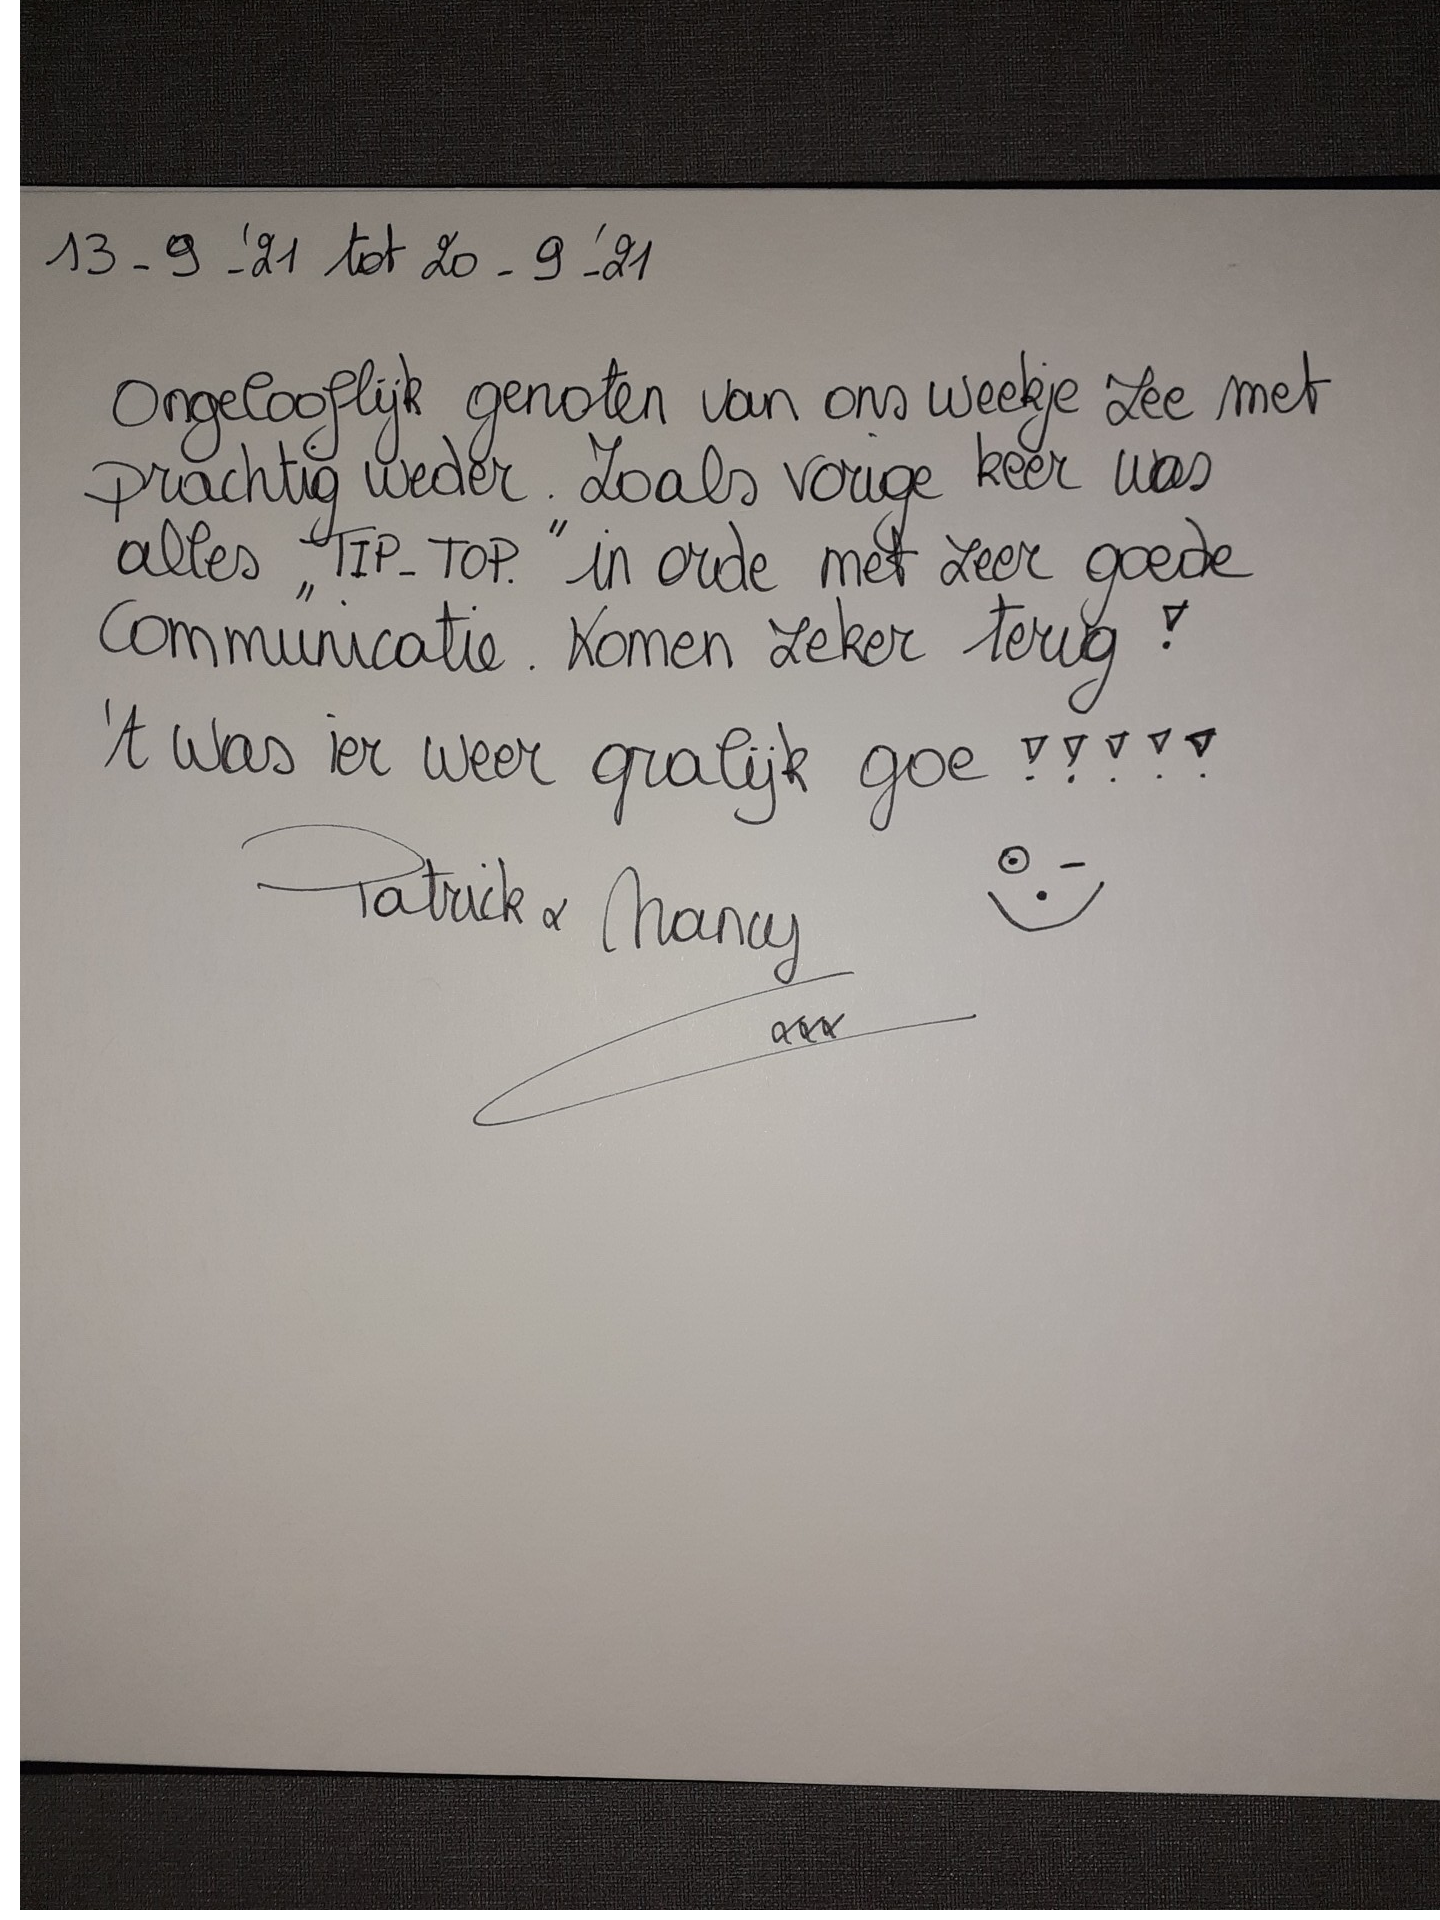 13-9-'21 tot 20-9-'21
Ongelooflijk genoten van ons weekje zee met
prachtig weder. Zoals vorige keer was
alles „TIP-TOP." in orde met zeer goede
Communicatie. Komen zeker terug!
't was ier weer gralijk goe !!!!!
Patrick & Nancy
xxx